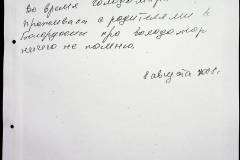 Во время голодомора
проживала с родителями в
Белоруссии про голодомор
ничего не помню.
8 августа 2008 г.